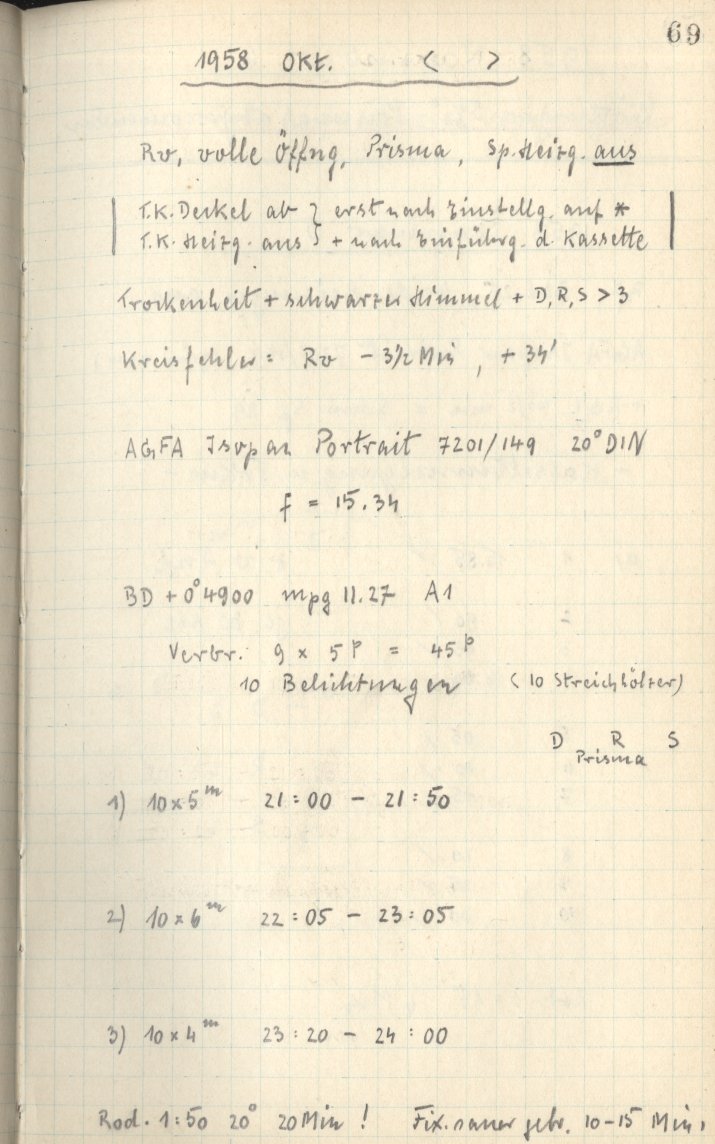 69
1958 Okt. < >
Rv, volle Öffng, Prisma, Sp. Heizg. aus
T.K. Deckel ab } erst nach Einstellg. auf *
T.K. Heizg. aus } + nach Einführg. d. Kassette
Trockenheit + schwarzer Himmel + D, R, S > 3
Kreisfehler = Rv - 3½ Min, + 34'
AGFA Isopan Portrait 7201/149 20° DIN
f = 15.34
BD + 0°4900 mpg 11.27 A1
Verbr. 9 x 5ᵖ = 45ᵖ
10 Belichtungen (10 Streichhölzer)
D R S
Prisma
1) 10 x 5ᵐ 21:00 - 21:50
2) 10 x 6ᵐ 22:05 - 23:05
3) 10 x 4ᵐ 23:20 - 24:00
Rod. 1:50 20° 20 Min! Fix. sauer gebr. 10-15 Min.